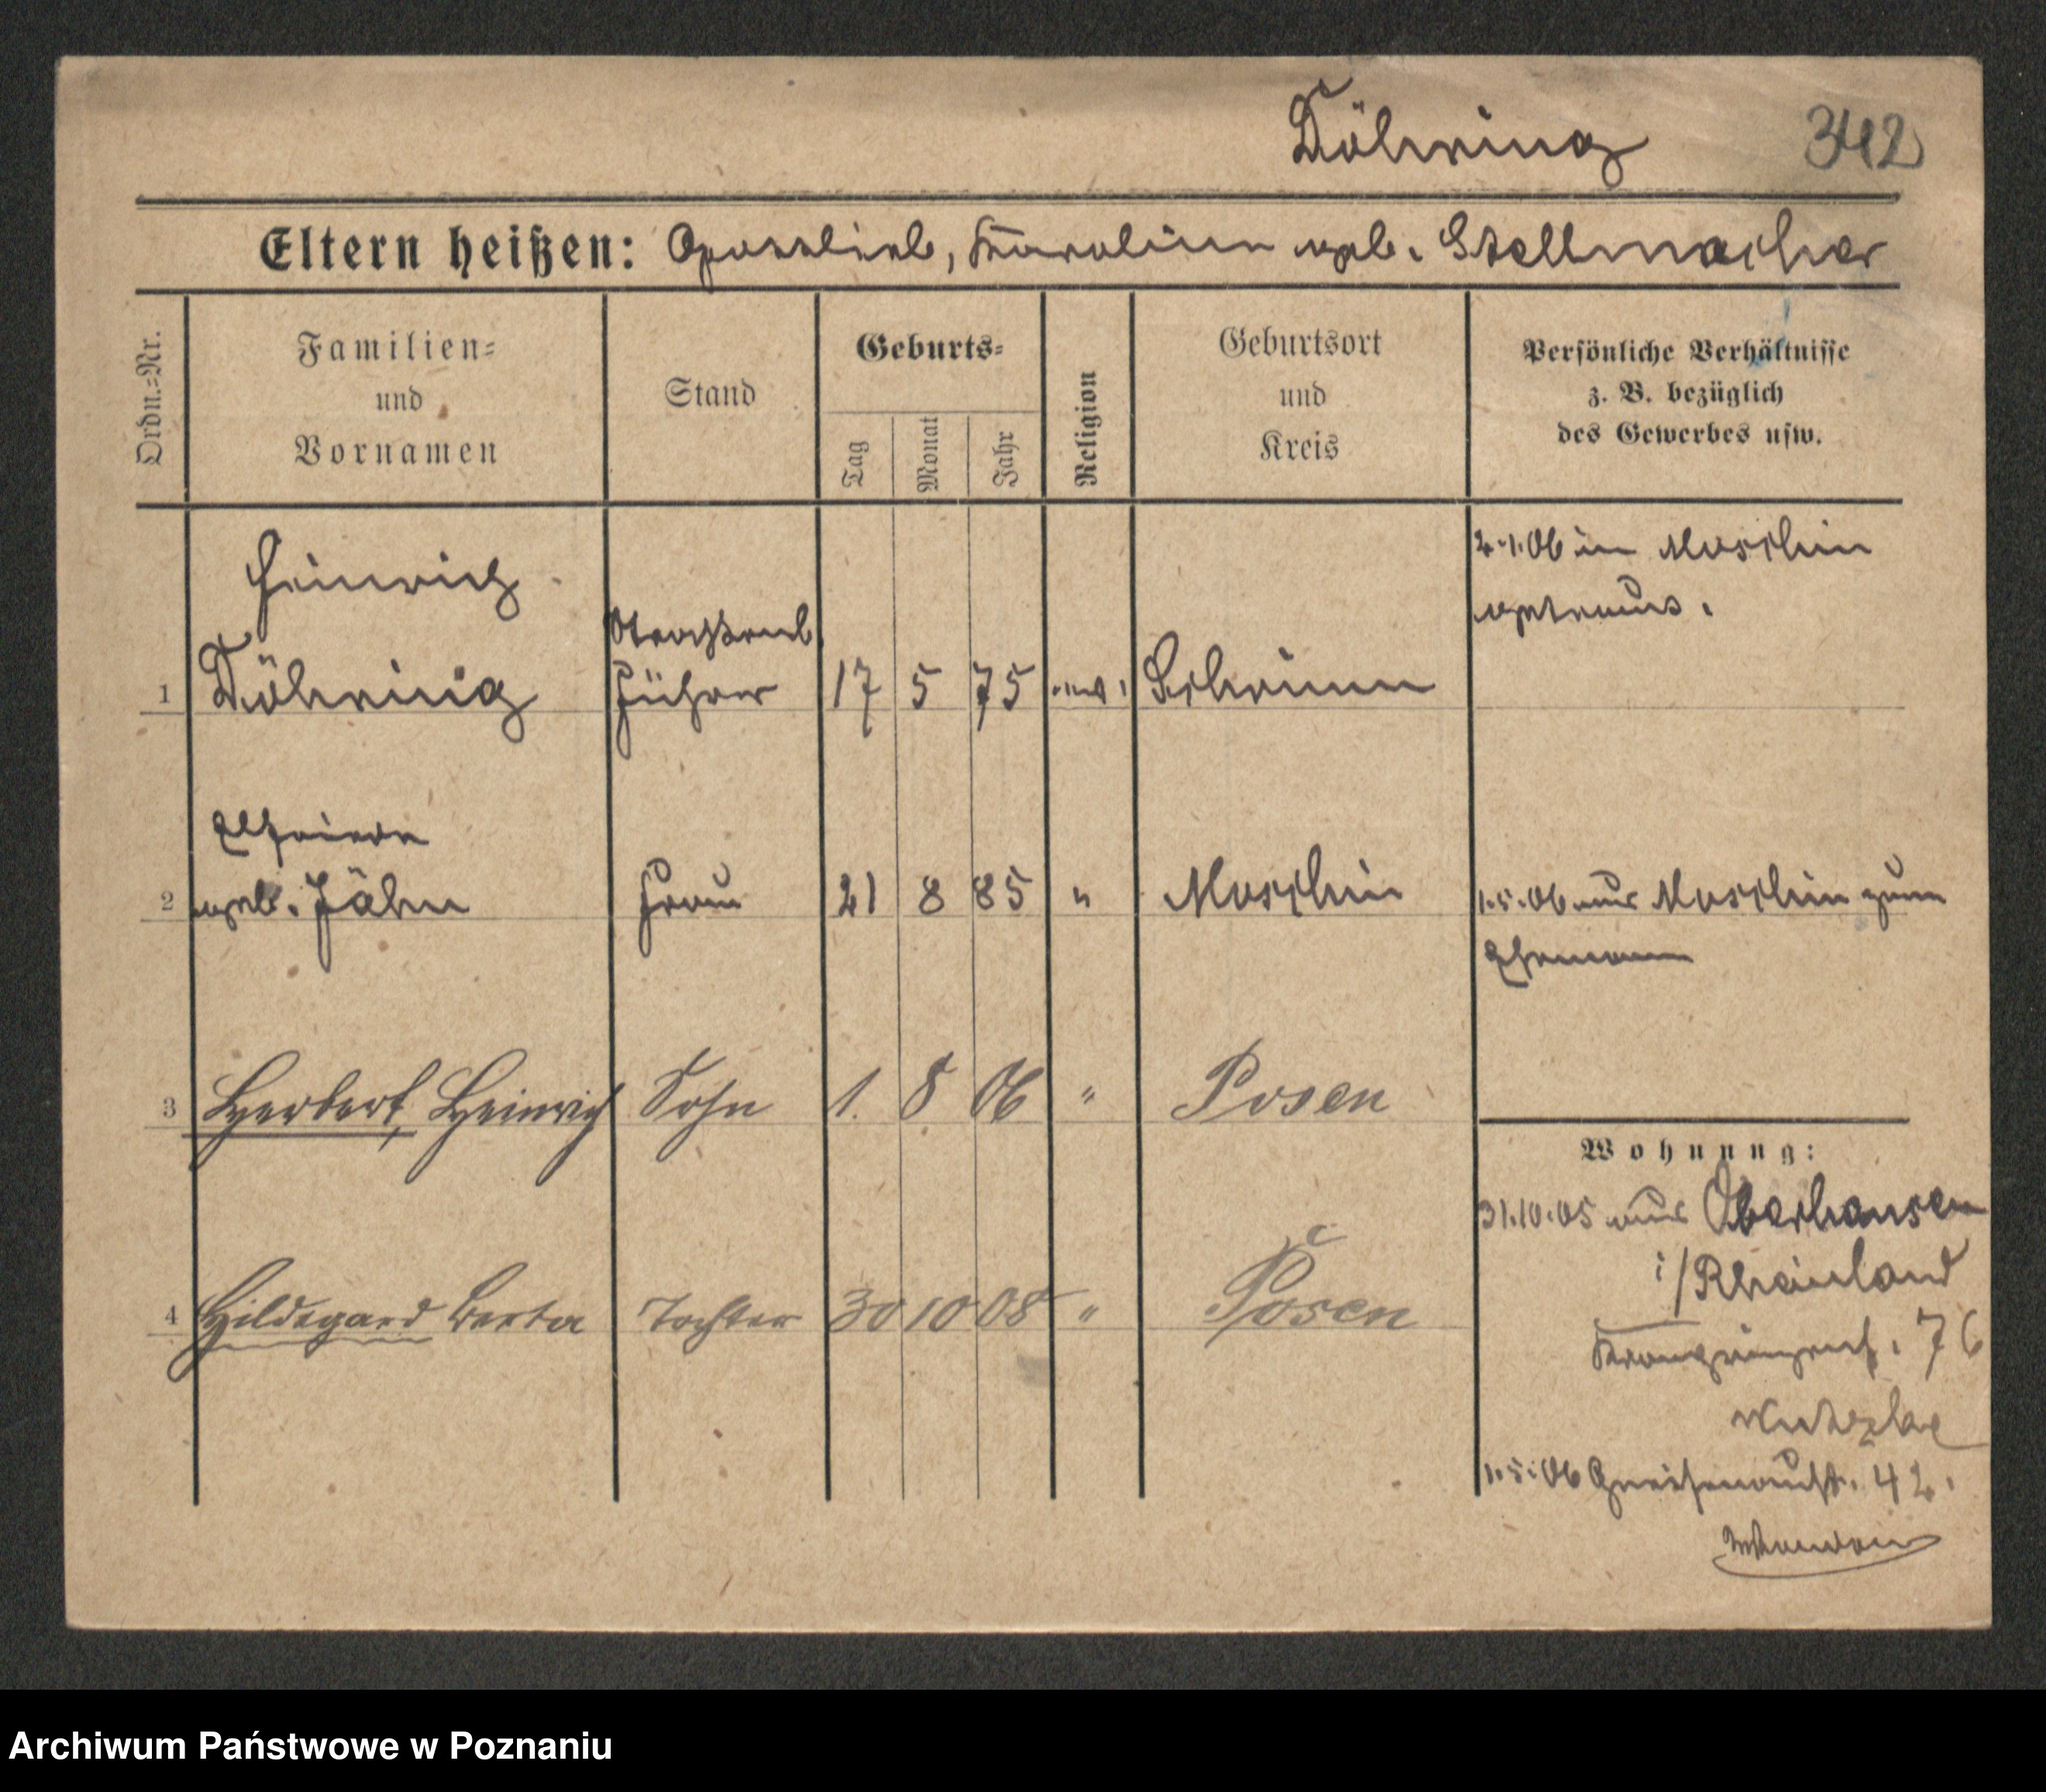 Döhring 342
Eltern heißen: Gottlieb, Karoline geb. Stellmacher
Ordn.-Nr.
Familien-
und
Vornamen
Stand
Geburts-
Tag
Monat
Jahr
Religion
Geburtsort
und
Kreis
Persönliche Verhältnisse
z. B. bezüglich
des Gewerbes usw.
Heinrich
1 Döhring
Führer 17 5 75 Schrimm
2.1.06 in Moschin
getraut.
Elfriede
2 geb. Jähn Frau 21 8 85 " Moschin
1.5.06 aus Moschin zum
Ehemann
3 Herbert, Heinrich Sohn 1. 8 06 " Posen
4 Hildegard Berta Tochter 30 10 08 " Posen
Wohnung:
31.10.05 aus Oberhausen
i/Rheinland
Kronprinzenst. 76
1.5.06 Gneisenaust. 42.
Archiwum Państwowe w Poznaniu